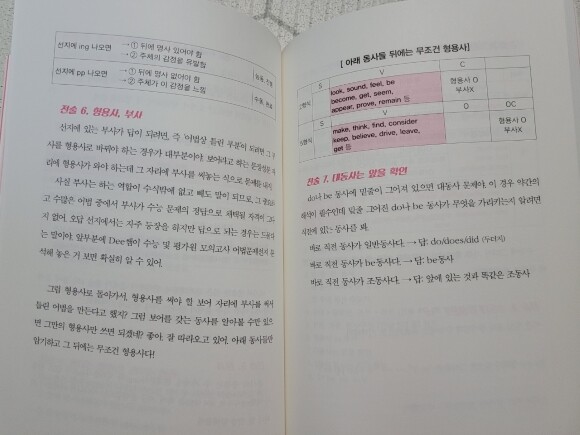 선지에 ing 나오면 → ① 뒤에 명사 있어야 함
→ ② 주체의 감정을 유발함
능동, 진행
선지에 pp 나오면 → ① 뒤에 명사 없어야 함
→ ② 주체가 이 감정을 느낌
수동, 완료
전술 6. 형용사, 부사
선지에 있는 부사가 답이 되려면, 즉 어법상 틀린 부분이 되려면 그 부
사를 형용사로 바꿔야 하는 경우가 대부분이야.
리에 형용사가 와야 하는데 그 자리에 부사를 써놓는 식으로 문제를 내지.
사실 부사는 하는 역할이 수식밖에 없고 빼도 말이 되므로, 그
고 수많은 어법 중에서 부사가 수능 문제의 정답으로 채택될 자격이 그다
지 없어. 오답 선지에서는 자주 등장을 하지만 답으로 되는 경우는 드물다
는 말이야. 앞부분에 Dee쌤이 수능 및 평가원 모의고사 어법문제전지 분
석해 놓은 거 보면 확실히 알 수 있어.
그럼 형용사로 돌아가서, 형용사를 써야 할 보어 자리에 부사를 써서
틀린 어법을 만든다고 했지? 그럼 보어를 갖는 동사를 알아볼 수만 있으
면 그만의 형용사만 쓰면 되겠네? 좋아. 잘 따라오고 있어. 아래 동사들만
암기하고 그 뒤에는 무조건 형용사다!
[ 아래 동사들 뒤에는 무조건 형용사]
S V C
2형식 look, sound, feel, be
become, get, seem,
appear, prove, remain 등
형용사 O
부사X
S V O OC
5형식 make, think, find, consider
keep, believe, drive, leave,
get 등
형용사 O
부사X
전술 7. 대동사는 앞을 확인
do나 be 동사에 밑줄이 그어져 있으면 대동사 문제야. 이 경우 약간의
해석이 필수인데 밑줄 그어진 do나 be 동사가 무엇을 가리키는지 알려면
직전에 있는 동사를 봐.
바로 직전 동사가 일반동사다. → 답: do/does/did
바로 직전 동사가 be동사다. → 답: be동사
바로 직전 동사가 조동사다. → 답: 앞에 있는 것과 똑같은 조동사